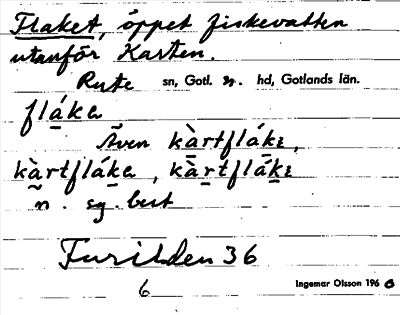 Flaket, öppet fiskevatten
utanför Kusten.
Rute sn, Gotl. n. hd, Gotlands län.
flák̲a
Även kàrtflákɛ,
kàrtfláka, kàrtflákɛ
n. sg. best
Furilden 36
6 Ingemar Olsson 1966